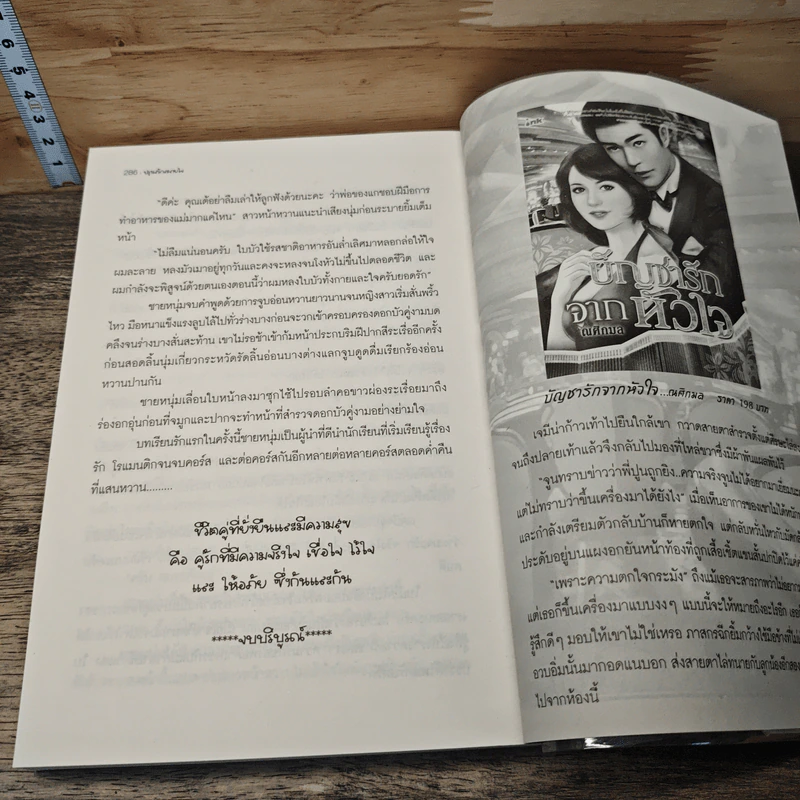 7
6
5
4
3
2
1
286
"ดีค่ะ คุณเต้อย่าลืมเล่าให้ลูกฟังด้วยนะคะ ว่าพ่อของแกชอบฝีมือการ
ทำอาหารของแม่มากแค่ไหน" สาวหน้าหวานแนะนำเสียงนุ่มก่อนระบายยิ้มเต็ม
หน้า
"ไม่ลืมแน่นอนครับ ใบบัวใช้รสชาติอาหารอันล้ำเลิศมาหลอกล่อให้ใจ
ผมละลาย หลงมัวเมาอยู่ทุกวันและคงจะหลงจนโงหัวไม่ขึ้นไปตลอดชีวิต และ
ผมกำลังจะพิสูจน์ด้วยตนเองตอนนี้ว่าผมหลงใบบัวทั้งกายและใจครับยอดรัก"
ชายหนุ่มจบคำพูดด้วยการจูบอ่อนหวานยาวนานจนหญิงสาวเริ่มสั่นพริ้ว
ไหว มือหนาแข็งแรงลูบไล้ไปทั่วร่างบางก่อนจะวกเข้าครอบครองดอกบัวคู่งามบด
คลึงจนร่างบางสั่นสะท้าน เขาไม่รอช้าเข้าก้มหน้าประกบริมฝีปากสีระเรื่ออีกครั้ง
ก่อนสอดลิ้นนุ่มเกี่ยวกระหวัดรัดลิ้นอ่อนบางต่างแลกจูบดูดดื่มเรียกร้องอ่อน
หวานปานกัน
ชายหนุ่มเลื่อนใบหน้าลงมาซุกไซ้ไปรอบลำคอขาวผ่องระเรื่อยมาถึง
ร่องอกอุ่นก่อนที่จมูกและปากจะทำหน้าที่สำรวจดอกบัวคู่งามอย่างย่ามใจ
บทเรียนรักแรกในครั้งนี้ชายหนุ่มเป็นผู้นำที่ดีนำนักเรียนที่เริ่มเรียนรู้เรื่อง
รัก โรแมนติกจนจบคอร์ส และต่อคอร์สกันอีกหลายต่อหลายคอร์สตลอดค่ำคืน
ที่แสนหวาน.........
ชีวิตคู่ที่ยั่งยืนและมีความสุข
คือ คู่รักที่มีความจริงใจ เชื่อใจ ไว้ใจ
และ ให้อภัย ซึ่งกันและกัน
*****จบบริบูรณ์*****
บัญชารัก
จากหัวใจ
ณศิกมล
บัญชารักจากหัวใจ...ณศิกมล ราคา 198 บาท
เจมีน่าก้าวเท้าไปยืนใกล้เขา กวาดสายตาสำรวจตั้งแต่ศีรษะ
จนถึงปลายเท้าแล้วจึงกลับไปมองที่ไหล่ขวาซึ่งมีผ้าพันแผลพันไว้
"จูนทราบข่าวว่าพี่ปูนถูกยิง..ความจริงจูนไม่ได้อยากมาเยี่ยม
แต่ไม่ทราบว่าขึ้นเครื่องมาได้ยังไง" เมื่อเห็นอาการของเขาไม่ได้หนัก
และกำลังเตรียมตัวกลับบ้านก็หายตกใจ แต่กลับหวั่นไหวกับ
ประดับอยู่บนแผงอกยันหน้าท้องที่ถูกเสื้อเชิ้ตแขนสั้นปกปิดไว้
"เพราะความตกใจกระมัง" ถึงแม้เธอจะสารภาพว่าไม่อยาก
แต่เธอก็ขึ้นเครื่องมาแบบงงๆ แบบนี้จะให้หมายถึงอะไรอีก
รู้สึกดีๆ มอบให้เขาไม่ใช่เหรอ ภาสกรฉีกยิ้มกว้างใช้มือข้าง
อวบอิ่มนั้นมากอดแนบอก ส่งสายตาไล่ทนายกับลูกน้องอีกสอง
ไปจากห้องนี้